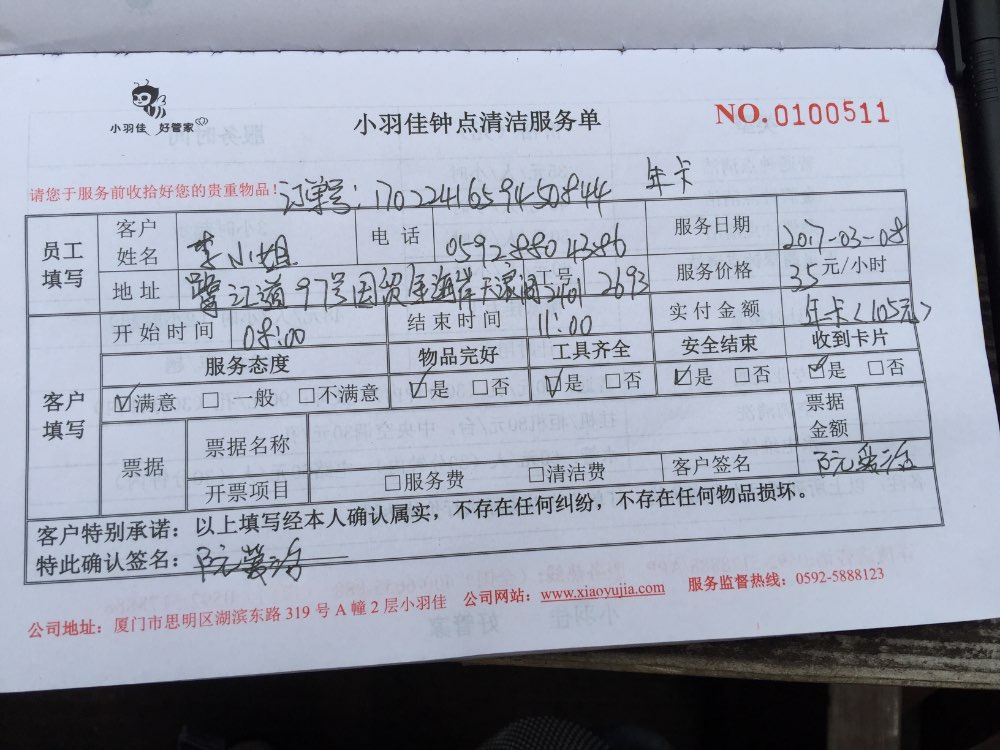 小羽佳 好管家
小羽佳钟点清洁服务单
NO.0100511
请您于服务前收拾好您的贵重物品!
订单号: 1702241659450844 年卡
员工填写 客户姓名 李小姐 电话 05928804386 服务日期 2017-03-08
地址 鹭江道97号国贸 海岸 2101 工号 2693 服务价格 35元/小时
客户填写 开始时间 08:00 结束时间 11:00 实付金额 年卡(105元)
服务态度 物品完好 工具齐全 安全结束 收到卡片
☑满意 □一般 □不满意 ☑是 □否 ☑是 □否 ☑是 □否 ☑是 □否
票据 票据名称 票据金额
开票项目 □服务费 □清洁费 客户签名 阮
客户特别承诺:以上填写经本人确认属实,不存在任何纠纷,不存在任何物品损坏。
特此确认签名: 阮
公司地址:厦门市思明区湖滨东路 319 号 A 幢 2 层小羽佳 公司网站:www.xiaoyujia.com 服务监督热线:0592-5888123